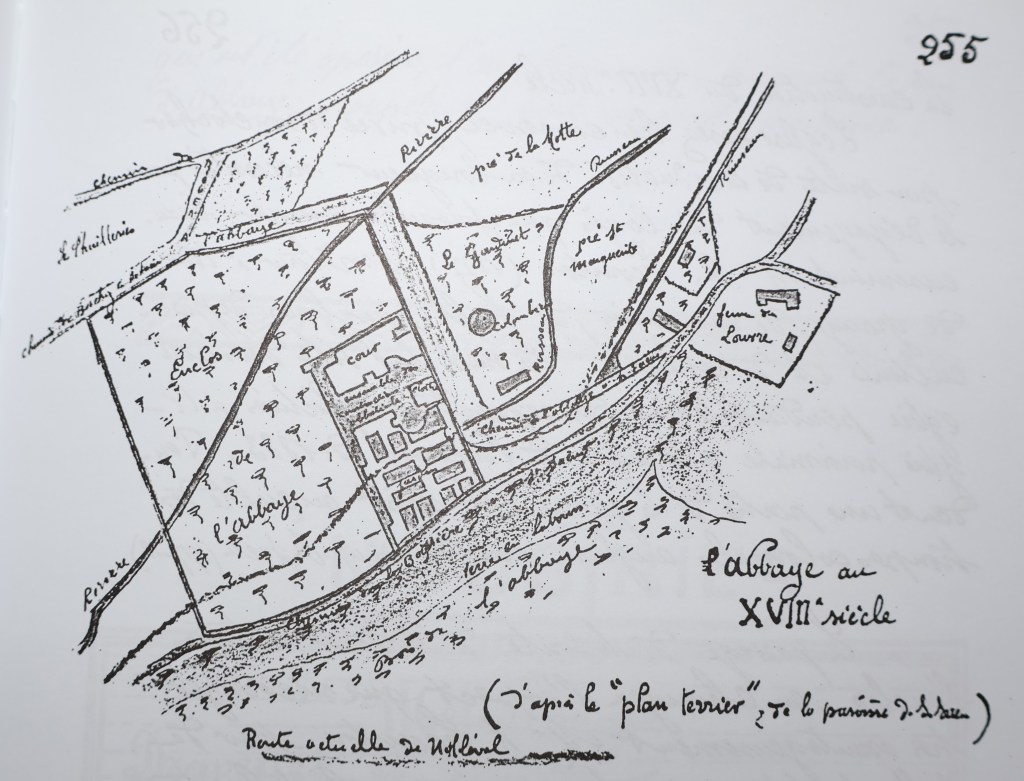 255
Rivière
pré de la Motte
Ruisseau
Ruisseau
chemin de
l'abbaye
le Jardinet
pré St
Marguerite
Colombier
Ruisseau
ferme du
Louvre
cour
Enclos
de
l'abbaye
chemin de l'abbaye
Rivière
Terre en labour
Bois de l'abbaye
l'abbaye au
XVIIIe siècle
(d'après le "plan terrier" de la paroisse de
Route actuelle de Nolléval